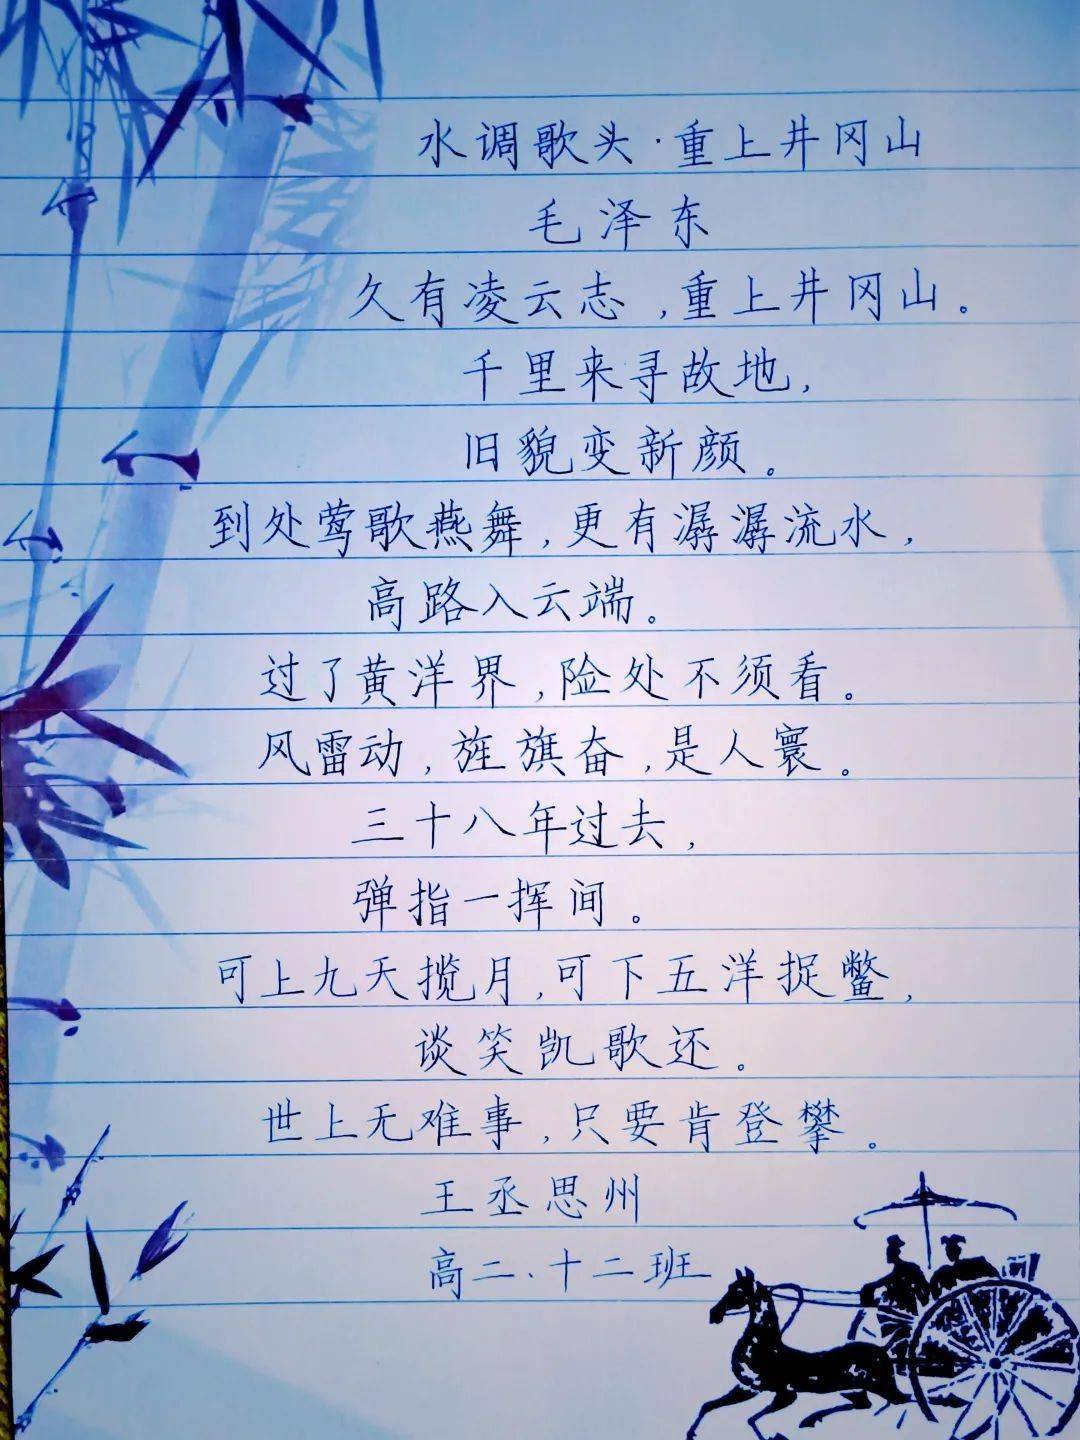 水调歌头·重上井冈山
毛泽东
久有凌云志,重上井冈山。
千里来寻故地,
旧貌变新颜。
到处莺歌燕舞,更有潺潺流水,
高路入云端。
过了黄洋界,险处不须看。
风雷动,旌旗奋,是人寰。
三十八年过去,
弹指一挥间。
可上九天揽月,可下五洋捉鳖,
谈笑凯歌还。
世上无难事,只要肯登攀。
王丞思州
高二、十二班